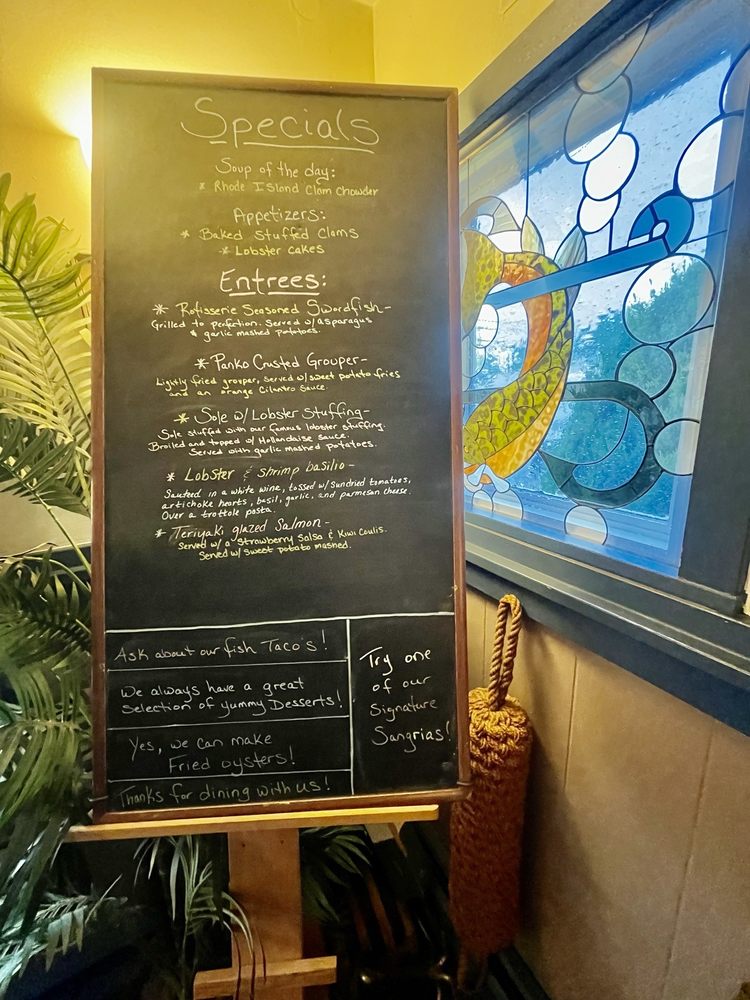 Specials
Soup of the day:
* Rhode Island Clam Chowder
Appetizers:
* Baked Stuffed Clams
* Lobster cakes
Entrees:
* Rotisserie Seasoned Swordfish-
Grilled to perfection. Served w/ asparagus
& garlic mashed potatoes.
* Panko Crusted Grouper-
Lightly fried grouper, served w/ sweet potato fries
and an orange Cilantro Sauce
* Sole w/ Lobster Stuffing-
Sole stuffed with our famous lobster stuffing.
Broiled and topped w/ Hollandaise sauce.
Served with garlic mashed potatoes.
* Lobster & shrimp basilio-
Sauteed in a white wine, tossed w/ sundried tomatoes,
artichoke hearts, basil, garlic, and parmesan cheese.
Over a trottole pasta.
* Teriyaki glazed Salmon-
Served w/ a Strawberry Salsa & Kiwi Coulis.
Served w/ sweet potato mashed.
Ask about our fish Taco's!
We always have a great
selection of yummy Desserts!
Yes, we can make
Fried oysters!
Thanks for dining with us!
Try one
of our
Signature
Sangrias!